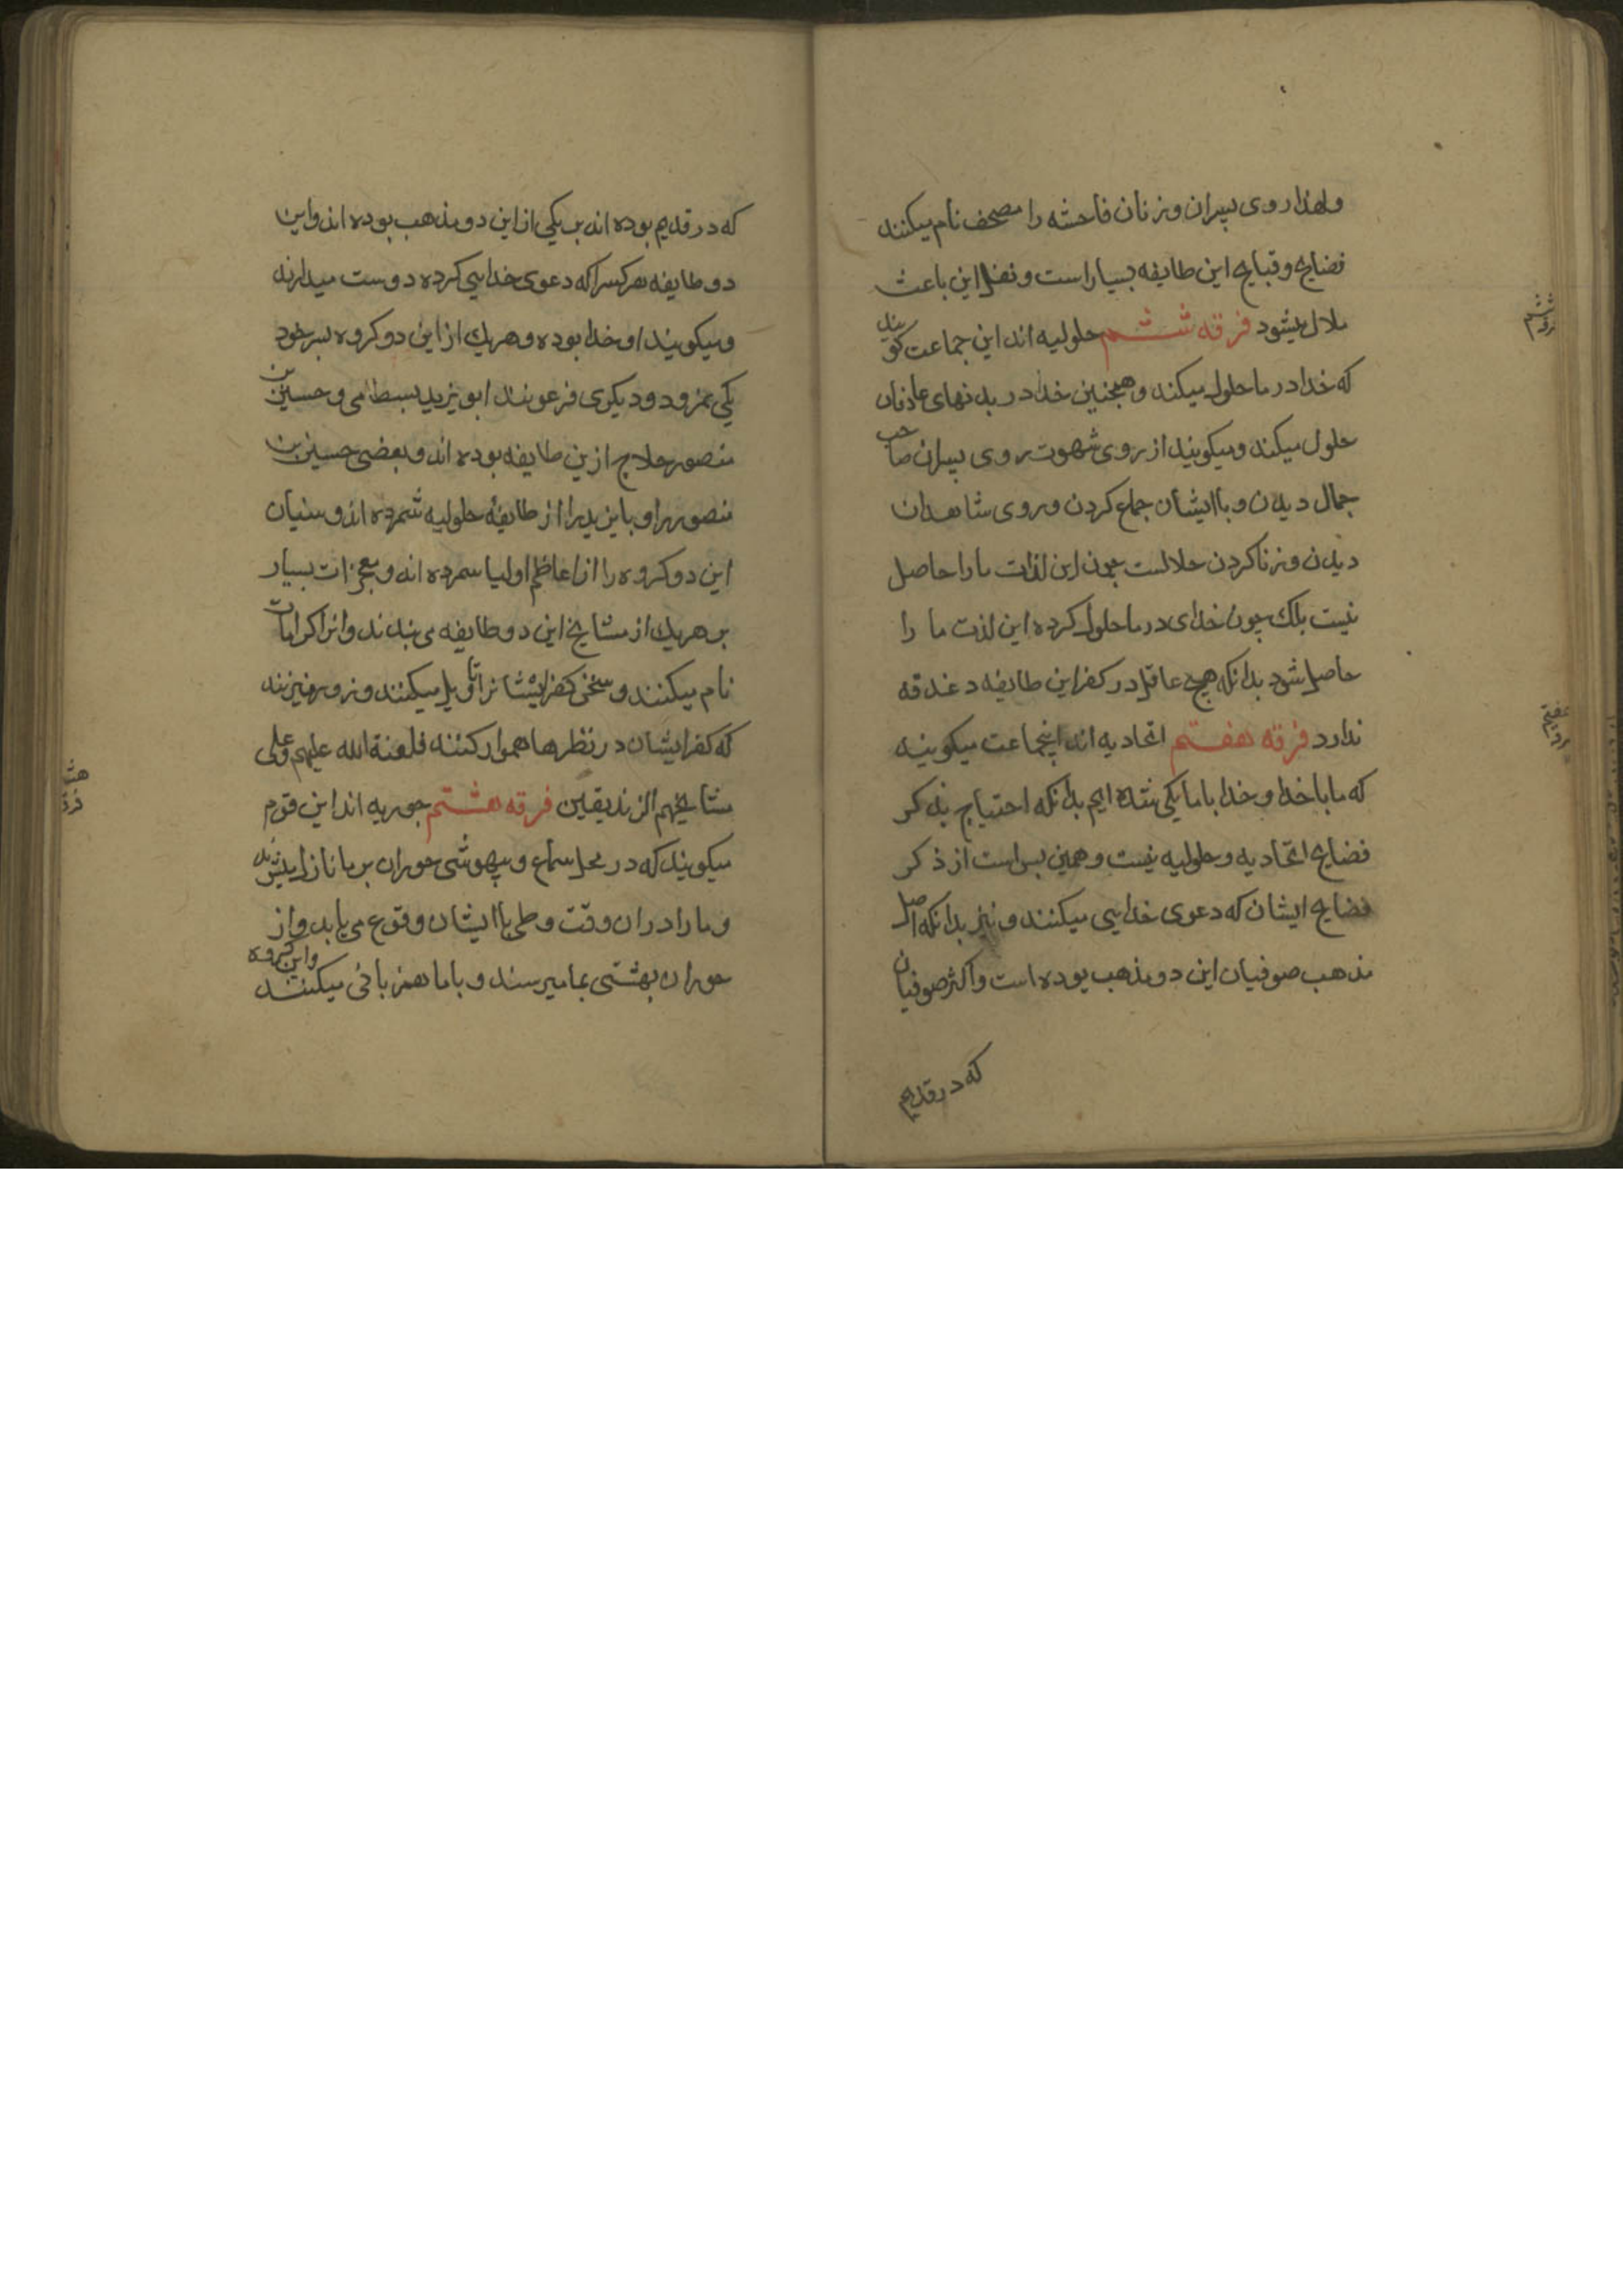 ولهذا روی پسران و زنان فاحشه را مصحف نام میکنند
فضایح و قبایح این طایفه بسیار است و نقل این باعث
ملال میشود فرقه ششم حلولیه اند این جماعت کویند
که خدا در ما حلول میکند و همچنین خدا در بدنهای عارفان
حلول میکند و میکویند از روی شهوت روی پسران صاحب
جمال دیدن و باایشان جماع کردن و روی شاهدان
دیدن و زنا کردن حلالست چون این لذات ما را حاصل
نیست بلک چون خدای در ما حلول کرده این لذت ما را
حاصل شود بدانکه هیچ عاقل در کفر این طایفه دغدقه
ندارد فرقه هفتم اتحادیه اند اینجماعت میکویند
که ما با خدا و خدا با ما یکی شده ایم بدانکه احتیاج بذکر
فضایح اتحادیه و حلولیه نیست و همین بس است از ذکر
فضایح ایشان که دعوی خدایی میکنند و نیز بدانکه اصل
مذهب صوفیان این دو مذهب بوده است و اکثر صوفیان
که در قدیم
ششم
هفتم
که در قدیم بوده اند بر یکی از این دو مذهب بوده اند و این
دو طایفه هر کسرا که دعوی خدایی کرده دوست میدارند
و میکویند او خدا بوده و هریک از این دو کروه بسر خود
یکی نمرود و دیکری فرعونند ابو یزید بسطامی و حسین بن
منصور حلاج ازین طایفه بوده اند و بعضی حسین بن
منصور را و بایزید را از طایفهٔ حلولیه شمرده اند و سنیان
این دو کروه را از اعاظم اولیا سمرده اند و معجزات بسیار
بر هریک از مشایخ این دو طایفه می بندند و انرا کرامات
نام میکنند و سخن کفر ایشانرا تاویل میکنند و زور میزنند
که کفر ایشان در نظرها هموار کنند فلعنة الله علیهم و علی
مشایخهم الزندیقین فرقه هشتم حوریه اند این قوم
میکویند که در محل سماع و بیهوشی حوران بر ما نازل میشوند
و ما را در ان وقت وطی باایشان وقوع می یابد و از
حوران بهشتی بما میرسند و باما همزبانی میکنند و این کروه